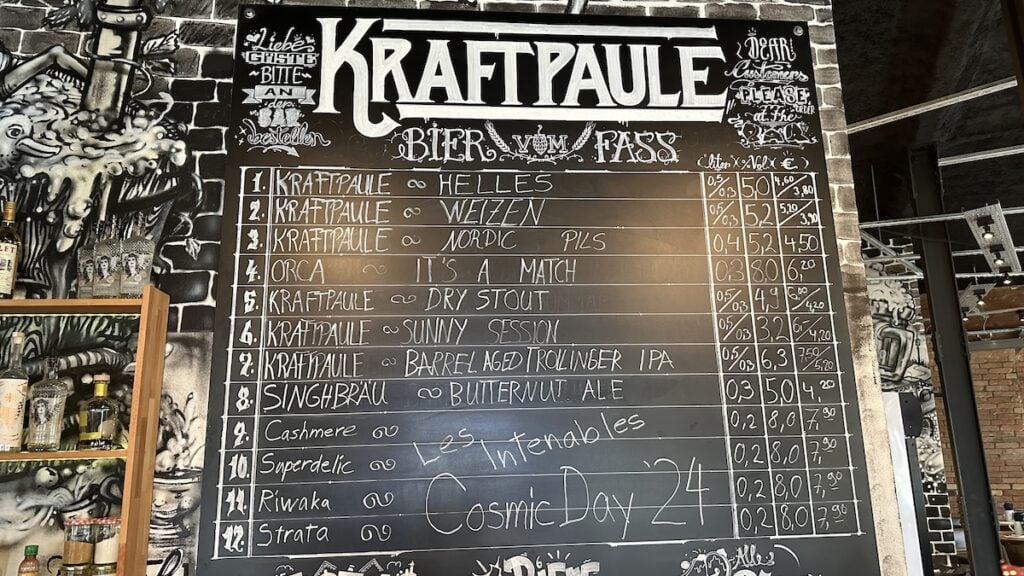 Liebe
GÄSTE
BITTE
AN
der
BAR
bestellen
KRAFTPAULE
DEAR
Customers
PLEASE
ORDER
at the
BAR
BIER VOM FASS
(Liter x %Vol x €)
1. KRAFTPAULE ~ HELLES 0,5/0,3 5,0 4,60/3,80
2. KRAFTPAULE ~ WEIZEN 0,5/0,3 5,2 5,20/3,90
3. KRAFTPAULE ~ NORDIC PILS 0,4 5,2 4,50
4. ORCA ~ IT'S A MATCH 0,3 8,0 6,20
5. KRAFTPAULE ~ DRY STOUT 0,5/0,3 4,9 6,00/4,20
6. KRAFTPAULE ~ SUNNY SESSION 0,5/0,3 3,2 6,-/4,20
7. KRAFTPAULE ~ BARREL AGED TROLLINGER IPA 0,5/0,3 6,3 7,50/5,20
8. SINGHBRÄU ~ BUTTERNUT ALE 0,3 5,0 4,20
9. Cashmere ~ 0,2 8,0 7,90
10. Superdelic ~ 0,2 8,0 7,90
11. Riwaka ~ 0,2 8,0 7,90
12. Strata ~ 0,2 8,0 7,90
Les Intenables
Cosmic Day '24